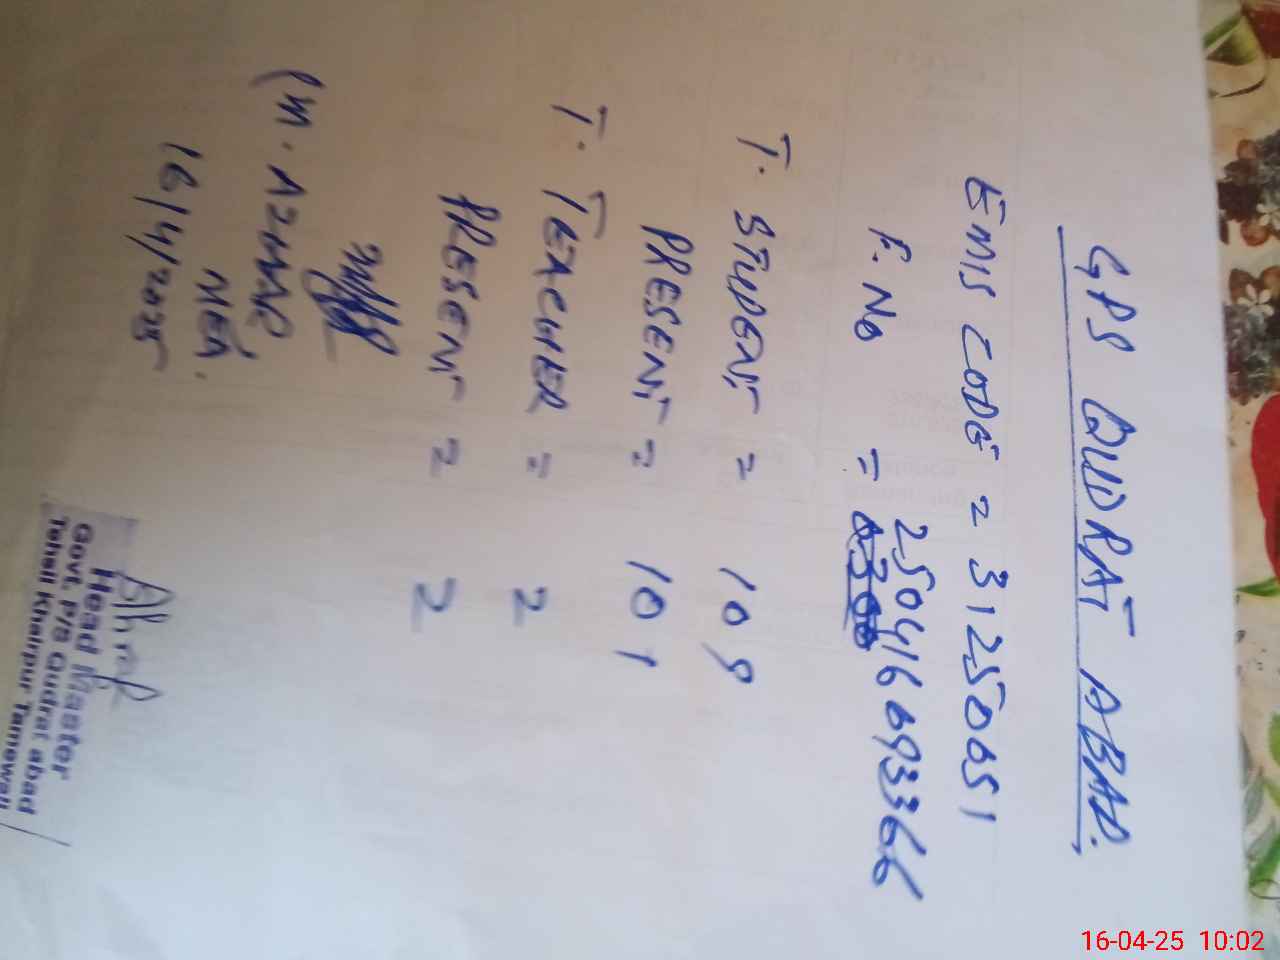 GPS QUDRAT ABAD.
EMIS CODE = 31250051
F. No = 250416093366
T. STUDENT = 109
PRESENT = 101
T. TEACHER = 2
PRESENT = 2
(M. AZHAR
MEA.
16/4/2025
Head Master
Govt. P/S Qudrat abad
Tehsil Khairpur Tamewali
16-04-25 10:02